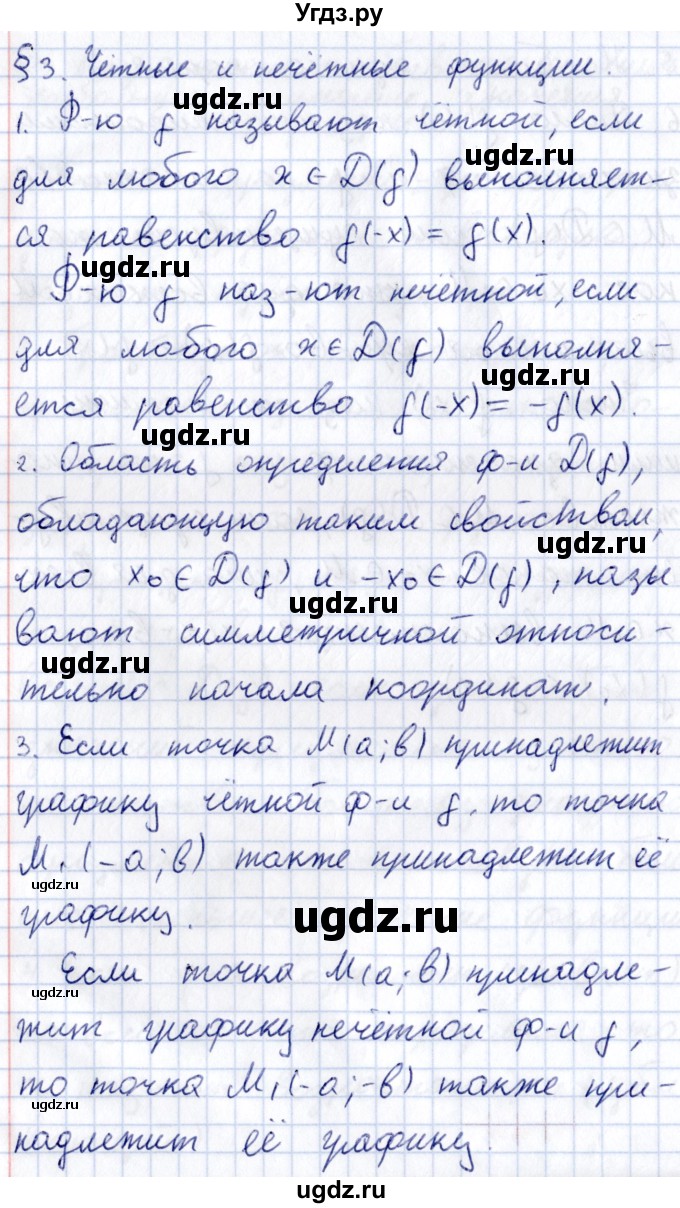 Угдз.ру
§3. Чётные и нечётные функции.
ugdz.ru
1. Ф-ю f называют чётной, если
ugdz.ru
для любого x ∈ D(f) выполняет-
ся равенство f(-x) = f(x).
ugdz.ru
Ф-ю f наз-ют нечётной, если
для любого x ∈ D(f) выполня-
ugdz.ru
ется равенство f(-x) = -f(x).
ugdz.ru
2. Область определения ф-и D(f),
обладающую таким свойством,
ugdz.ru
что x₀ ∈ D(f) и -x₀ ∈ D(f), назы
ugdz.ru
вают симметричной относи-
ugdz.ru
тельно начала координат.
3. Если точка M(a;b) принадлежит
графику чётной ф-и f, то точка
M₁(-a;b) также принадлежит её
ugdz.ru
графику.
ugdz.ru
Если точка M(a;b) принадле-
ugdz.ru
жит графику нечётной ф-и f,
то точка M₁(-a;-b) также при-
ugdz.ru
надлежит её графику.
ugdz.ru